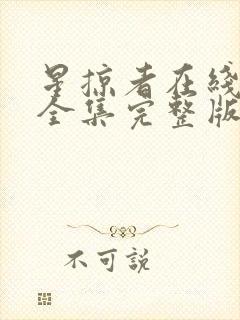 星掠者在綫
全集完整版
不可説